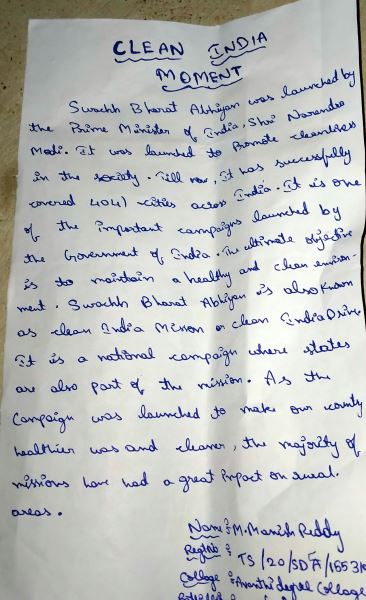 CLEAN INDIA
MOMENT
Swachh Bharat Abhiyan was launched by
the Prime Minister of India, Shri Narendra
Modi. It was launched to Promote cleanliness
in the society. Till now, It has successfully
covered 4041 cities across India. It is one
of the important campaigns launched by
the Government of India. The ultimate objective
is to maintain a healthy and clean environ-
ment. Swachh Bharat Abhiyan is also known
as clean India Mission or clean India Drive.
It is a national campaign where states
are also part of the mission. As the
Campaign was launched to make our county
healthier was and cleaner, the majority of
missions have had a great impact on rural
areas.
Name: M. Manish Reddy
RegNo: TS/20/SDF/1553
College: degree College